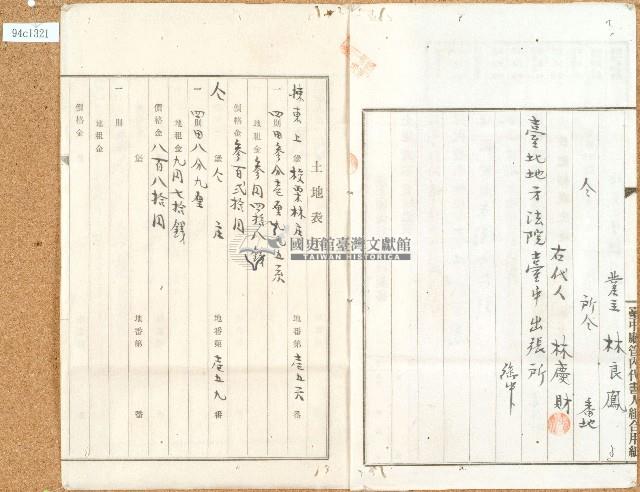 94c1321
仝
業主 林良鳳
所仝 番地
右代人 林慶財
臺北地方法院臺中出張所
御中
臺中廳管內代書人組合用紙
土地表
揀東上堡校栗林庄 地番第壱五六番
一 四則田參分壱厘九毛五糸
地租金參円四拾八錢
價格金參百弐拾円
仝堡仝庄 地番第壱五九番
一 四則田八分九厘
地租金九円七拾錢
價格金八百八拾円
堡 地番第 番
一 則
地租金
價格金
國史館臺灣文獻館
TAIWAN HISTORICA